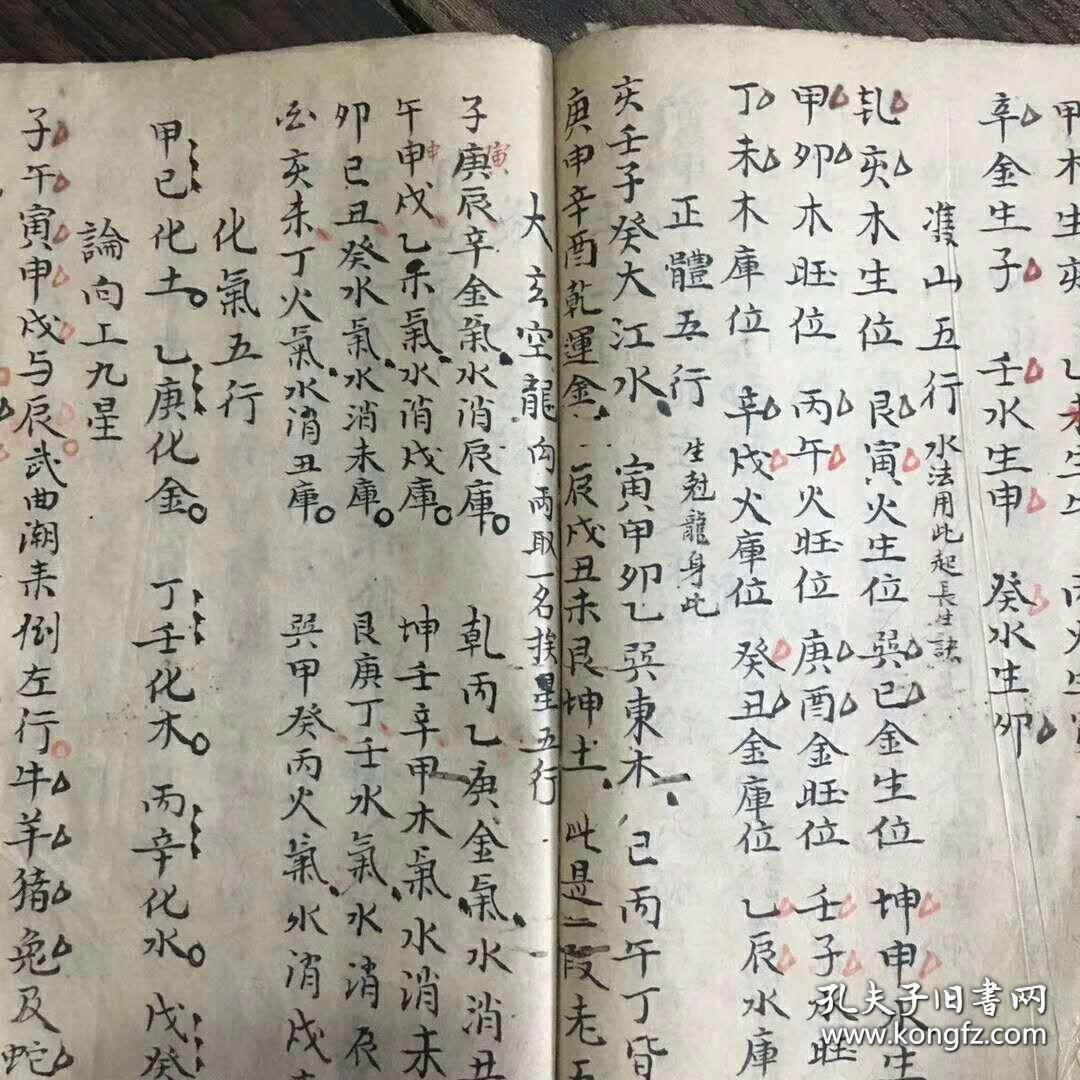 甲木生亥 乙木
辛金生子 壬水生申 癸水生卯
双山五行 水法用此起長生訣
乹亥木生位 艮寅火生位 巽巳金生位 坤申水生
甲卯木旺位 丙午火旺位 庚酉金旺位 壬子水旺
丁未木庫位 辛戌火庫位 癸丑金庫位 乙辰水庫
正體五行 生尅龍身此
亥壬子癸大江水 寅甲卯乙巽東木 巳丙午丁皆
庚申辛酉乾運金 辰戌丑未艮坤土 此是二段老五
大玄空龍向兩取一名挨星五行
子寅庚辰辛金氣水消辰庫 乾丙乙庚金氣水消丑
午申申戌乙木氣水消戌庫 坤壬辛甲木氣水消未
卯巳丑癸水氣水消未庫 艮庚丁壬水氣水消辰
酉亥未丁火氣水消丑庫 巽甲癸丙火氣水消戌
化氣五行
甲己化土 乙庚化金 丁壬化木 丙辛化水 戊癸
論向上九星
子午寅申戌与辰武曲潮来倒左行牛羊猪兔及蛇
孔夫子旧书网
www.kongfz.com